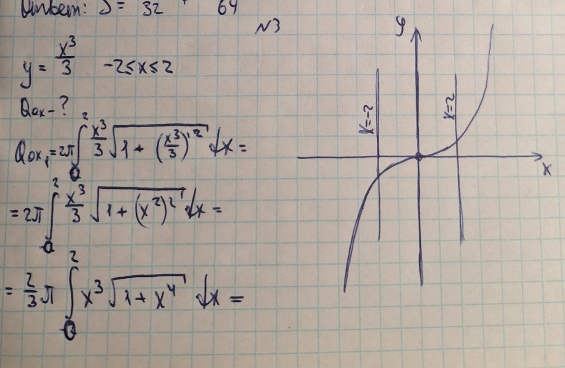 Ответ: S = 32 + 64
№3
y = x³/3 -2≤x≤2
Qox - ?
Qox₁ = 2π ∫₀² x³/3 √(1 + (x³/3)'²) dx =
= 2π ∫₀² x³/3 √(1 + (x²)²) dx =
= 2/3 π ∫₀² x³ √(1 + x⁴) dx =
y
x=-2
x=2
x